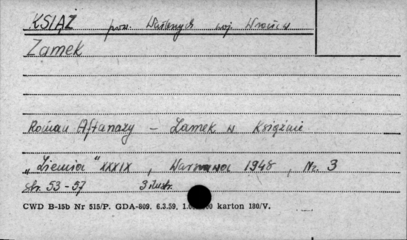 KSIĄŻ pow. Wałbrzych woj. Wrocław
Zamek
Roman Aftanazy - Zamek w Książnie
"Ziemia" XXXIX, Warszawa 1948, Nr. 3
str. 53-57 3 ilustr.
CWD B-15b Nr 515/P. GDA-809. 6.3.59. karton 180/V.